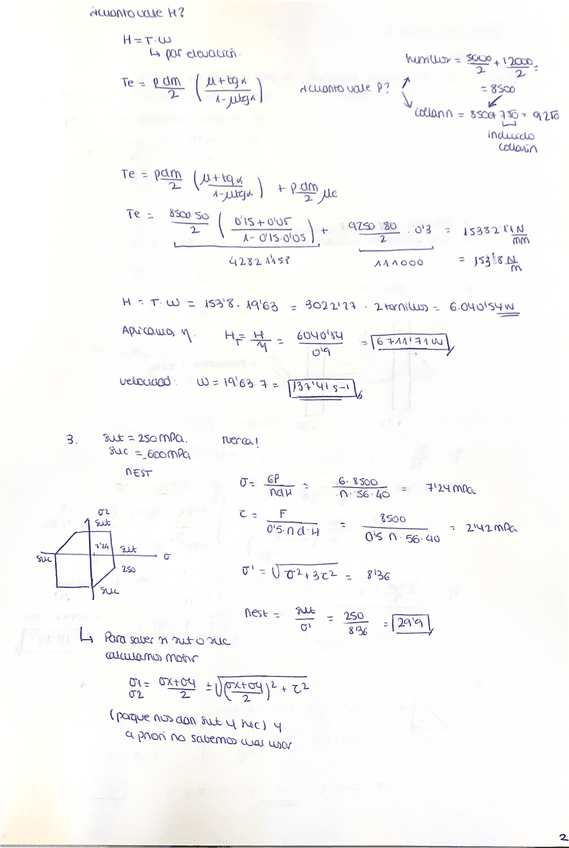 ¿cuanto vale H?
H = T · W
↳ par elevación.
Te = p dm / 2 ( μ + tg α / 1 - μ tg α )
¿cuanto vale P?
husillos = 5000/2 + 12000/2 =
= 8500
collarín = 8500 + 750 = 9250
incluido
collarín
Te = p dm / 2 ( μ + tg α / 1 - μ tg α ) + p dm / 2 μc
Te = 8500·50 / 2 ( 0'15 + 0'05 / 1 - 0'15·0'05 ) + 9250·80 / 2 · 0'3 = 15382 N
mm
42821'158
111000
= 153'8 N
m
H = T · W = 153'8 · 19'63 = 3022'27 · 2 tornillos = 6.040'54 W
Aplicamos η. Hr = H / η = 6040'54 / 0'9 = 6711'71 W
velocidad: W = 19'63·7 = 137'41 s-1
3. Sut = 250 MPa. tuerca!
Suc = -600 MPa
nEST
σ = 6P / π d H = 6·8500 / π·56·40 = 7'24 MPa
σ2
Sut
7'24
Sut
σ
Suc
250
Suc
τ = F / 0'5·π d·H = 8500 / 0'5 π·56·40 = 2'42 MPa
σ' = √ σ² + 3τ² = 8'36
nest = Sut / σ' = 250 / 8'36 = 29'9
↳ Para saber si sut o suc
calculamos mohr
σ1 σ2 = σx + σy / 2 ± √ ( σx + σy / 2 )² + τ²
(porque nos dan sut y suc) y
a priori no sabemos cual usar
2